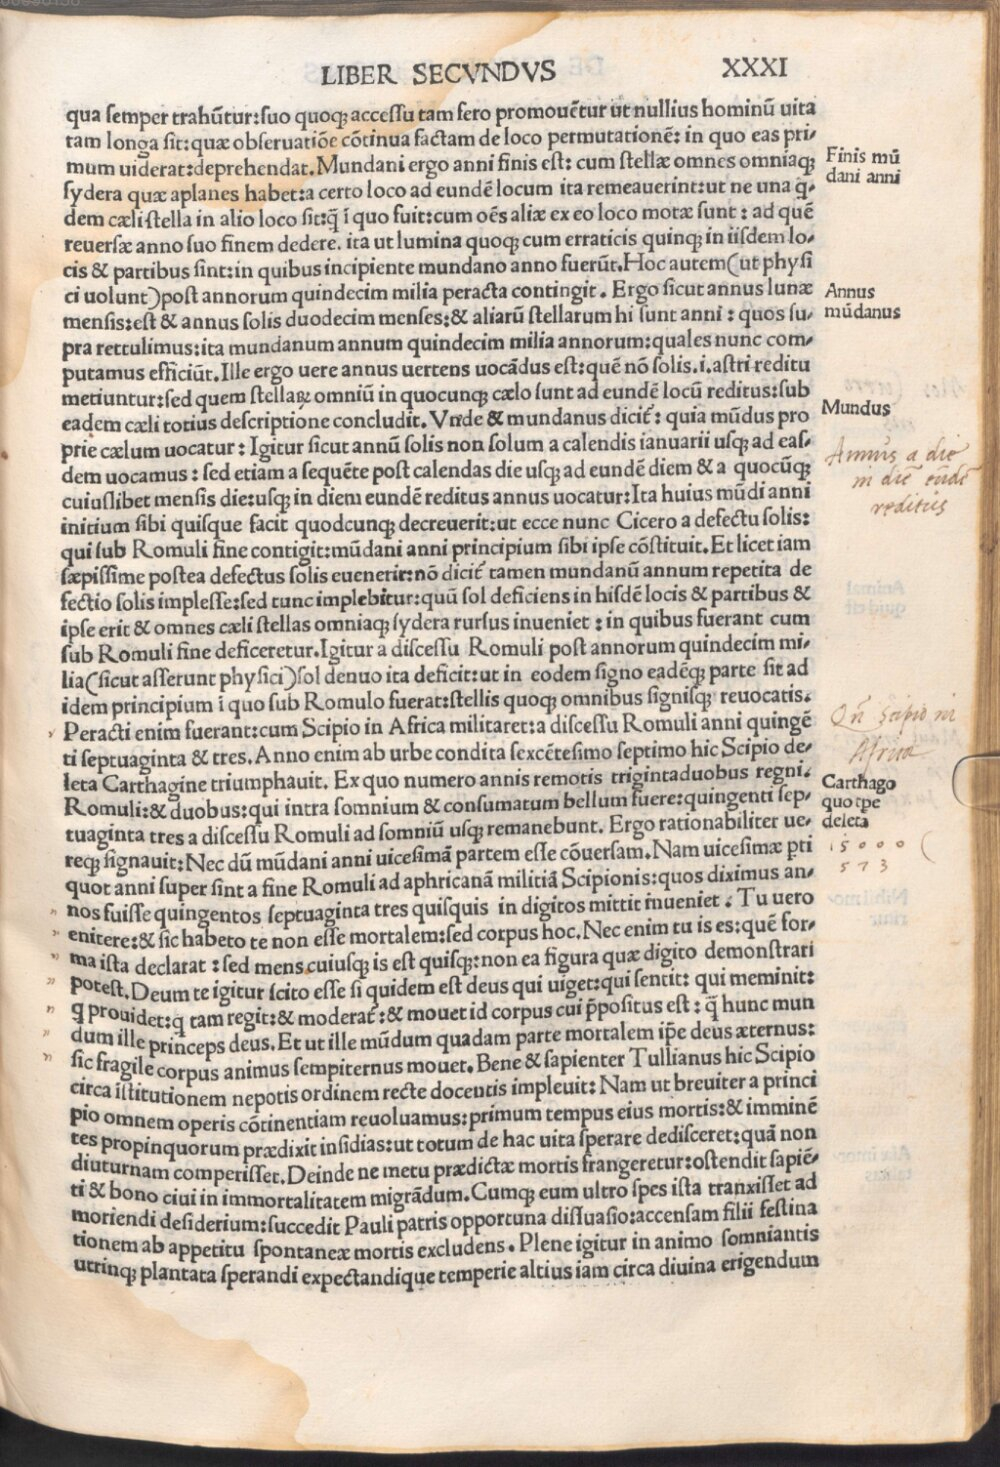 LIBER SECVNDVS XXXI
qua semper trahūtur:suo quoq; accessu tam sero promouētur ut nullius hominū uita
tam longa sit:quæ obseruatiōe cōtinua factam de loco permutationē: in quo eas pri-
mum uiderat:deprehendat. Mundani ergo anni finis est: cum stellæ omnes omniaq;
sydera quæ aplanes habet:a certo loco ad eundē locum ita remeauerint:ut ne una q̄-
dem cæli stella in alio loco sit:q̄ ī quo fuit:cum oēs aliæ ex eo loco motæ sunt: ad quē
reuersæ anno suo finem dedere. ita ut lumina quoq; cum erraticis quinq; in iisdem lo-
cis & partibus sint:in quibus incipiente mundano anno fuerūt.Hoc autem(ut physi
ci uolunt)post annorum quindecim milia peracta contingit. Ergo sicut annus lunæ
mensis:est & annus solis duodecim menses:& aliarū stellarum hi sunt anni: quos su-
pra rettulimus:ita mundanum annum quindecim milia annorum:quales nunc com-
putamus efficiūt.Ille ergo uere annus uertens uocādus est:quē nō solis.i.astri reditu
metiuntur:sed quem stellaꝝ omniū in quocunq; cælo sunt ad eundē locū reditus:sub
eadem cæli totius descriptione concludit. Vnde & mundanus dicit̄: quia mūdus pro
prie cælum uocatur: Igitur sicut annū solis non solum a calendis ianuarii usq; ad eas-
dem uocamus: sed etiam a sequēte post calendas die usq; ad eundē diem & a quocūq;
cuiuslibet mensis die:usq; in diem eundē reditus annus uocatur:Ita huius mūdi anni
initium sibi quisque facit quodcunq; decreuerit:ut ecce nunc Cicero a defectu solis:
qui sub Romuli fine contigit:mūdani anni principium sibi ipse cōstituit.Et licet iam
sæpissime postea defectus solis euenerit:nō dicit̄ tamen mundanū annum repetita de
fectio solis implesse:sed tunc implebitur:quū sol deficiens in hisdē locis & partibus &
ipse erit & omnes cæli stellas omniaq; sydera rursus inueniet: in quibus fuerant cum
sub Romuli fine deficeretur.Igitur a discessu Romuli post annorum quindecim mi-
lia(sicut asserunt physici)sol denuo ita deficit:ut in eodem signo eadēq; parte sit ad
idem principium ī quo sub Romulo fuerat:stellis quoq; omnibus signisq; reuocatis.
Peracti enim fuerant:cum Scipio in Africa militaret:a discessu Romuli anni quingē
ti septuaginta & tres. Anno enim ab urbe condita sexcētesimo septimo hic Scipio de-
leta Carthagine triumphauit. Ex quo numero annis remotis trigintaduobus regni.
Romuli:& duobus:qui intra somnium & consumatum bellum fuere:quingenti sep-
tuaginta tres a discessu Romuli ad somniū usq; remanebunt. Ergo rationabiliter ue-
req; signauit:Nec dū mūdani anni uicesimā partem esse cōuersam.Nam uicesimæ ꝑti
quot anni super sint a fine Romuli ad aphricanā militiā Scipionis:quos diximus an-
nos fuisse quingentos septuaginta tres quisquis in digitos mittit inueniet. Tu uero
enitere:& sic habeto te non esse mortalem:sed corpus hoc. Nec enim tu is es:quē for-
ma ista declarat: sed mens cuiusq; is est quisq;:non ea figura quæ digito demonstrari
potest.Deum te igitur scito esse si quidem est deus qui uiget:qui sentit: qui meminit:
q prouidet:q tam regit:& moderat̄:& mouet id corpus cui p̄positus est: q̄ hunc mun
dum ille princeps deus. Et ut ille mūdum quadam parte mortalem ip̄e deus æternus:
sic fragile corpus animus sempiternus mouet. Bene & sapienter Tullianus hic Scipio
circa īstitutionem nepotis ordinem recte docentis impleuit: Nam ut breuiter a princi
pio omnem operis cōtinentiam reuoluamus:primum tempus eius mortis:& imminē
tes propinquorum prædixit insidias:ut totum de hac uita sperare dedisceret:quā non
diuturnam comperisset. Deinde ne metu prædictæ mortis frangeretur:ostendit sapiē-
ti & bono ciui in immortalitatem migrādum.Cumq; eum ultro spes ista tranxisset ad
moriendi desiderium:succedit Pauli patris opportuna dissuasio:accensam filii festina
tionem ab appetitu spontaneæ mortis excludens. Plene igitur in animo somniantis
utrinq; plantata sperandi expectandique temperie altius iam circa diuina erigendum
Finis mū
dani anni
Annus
mūdanus
Mundus
Annus a die
in diē eūdē
reditus
Qn̄ Scipio in
Africa
Carthago
quo tꝑe
deleta
15000
573